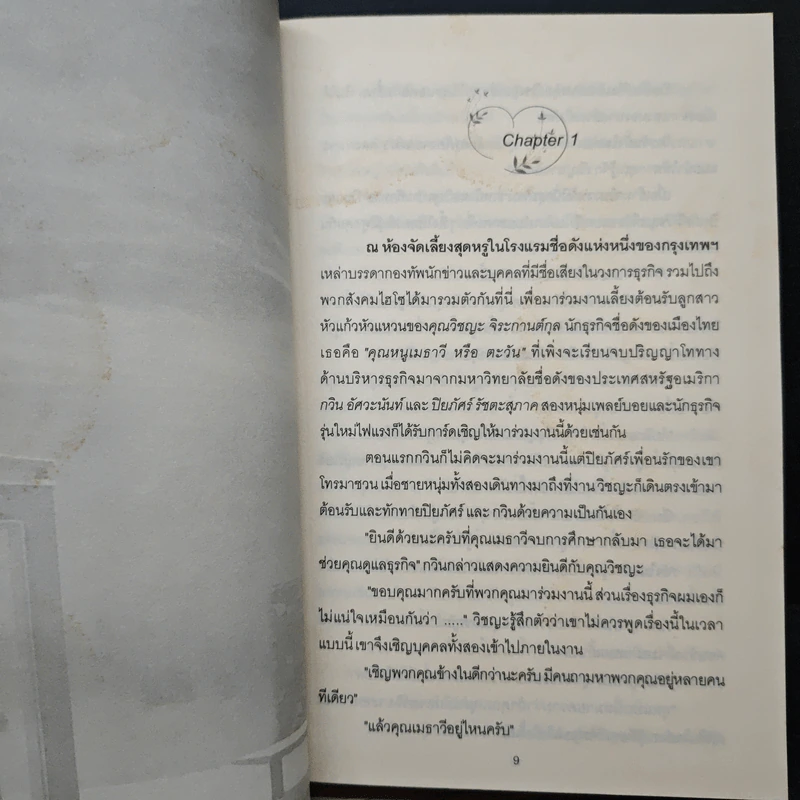 Chapter 1
ณ ห้องจัดเลี้ยงสุดหรูในโรงแรมชื่อดังแห่งหนึ่งของกรุงเทพฯ
เหล่าบรรดากองทัพนักข่าวและบุคคลที่มีชื่อเสียงในวงการธุรกิจ รวมไปถึง
พวกสังคมไฮโซได้มารวมตัวกันที่นี่ เพื่อมาร่วมงานเลี้ยงต้อนรับลูกสาว
หัวแก้วหัวแหวนของคุณวิชญะ จิระกานต์กุล นักธุรกิจชื่อดังของเมืองไทย
เธอคือ "คุณหนูเมธาวี หรือ ตะวัน" ที่เพิ่งจะเรียนจบปริญญาโททาง
ด้านบริหารธุรกิจมาจากมหาวิทยาลัยชื่อดังของประเทศสหรัฐอเมริกา
กวิน อัศวะนันท์ และ ปิยภัศร์ รัชตะสุภาค สองหนุ่มเพลย์บอยและนักธุรกิจ
รุ่นใหม่ไฟแรงก็ได้รับการ์ดเชิญให้มาร่วมงานนี้ด้วยเช่นกัน
ตอนแรกกวินก็ไม่คิดจะมาร่วมงานนี้แต่ปิยภัศร์เพื่อนรักของเขา
โทรมาชวน เมื่อชายหนุ่มทั้งสองเดินทางมาถึงที่งาน วิชญะก็เดินตรงเข้ามา
ต้อนรับและทักทายปิยภัศร์ และ กวินด้วยความเป็นกันเอง
"ยินดีด้วยนะครับที่คุณเมธาวีจบการศึกษากลับมา เธอจะได้มา
ช่วยคุณดูแลธุรกิจ" กวินกล่าวแสดงความยินดีกับคุณวิชญะ
"ขอบคุณมากครับที่พวกคุณมาร่วมงานนี้ ส่วนเรื่องธุรกิจผมเองก็
ไม่แน่ใจเหมือนกันว่า ....." วิชญะรู้สึกตัวว่าเขาไม่ควรพูดเรื่องนี้ในเวลา
แบบนี้ เขาจึงเชิญบุคคลทั้งสองเข้าไปภายในงาน
"เชิญพวกคุณข้างในดีกว่านะครับ มีคนถามหาพวกคุณอยู่หลายคน
ทีเดียว"
"แล้วคุณเมธาวีอยู่ไหนครับ"
9